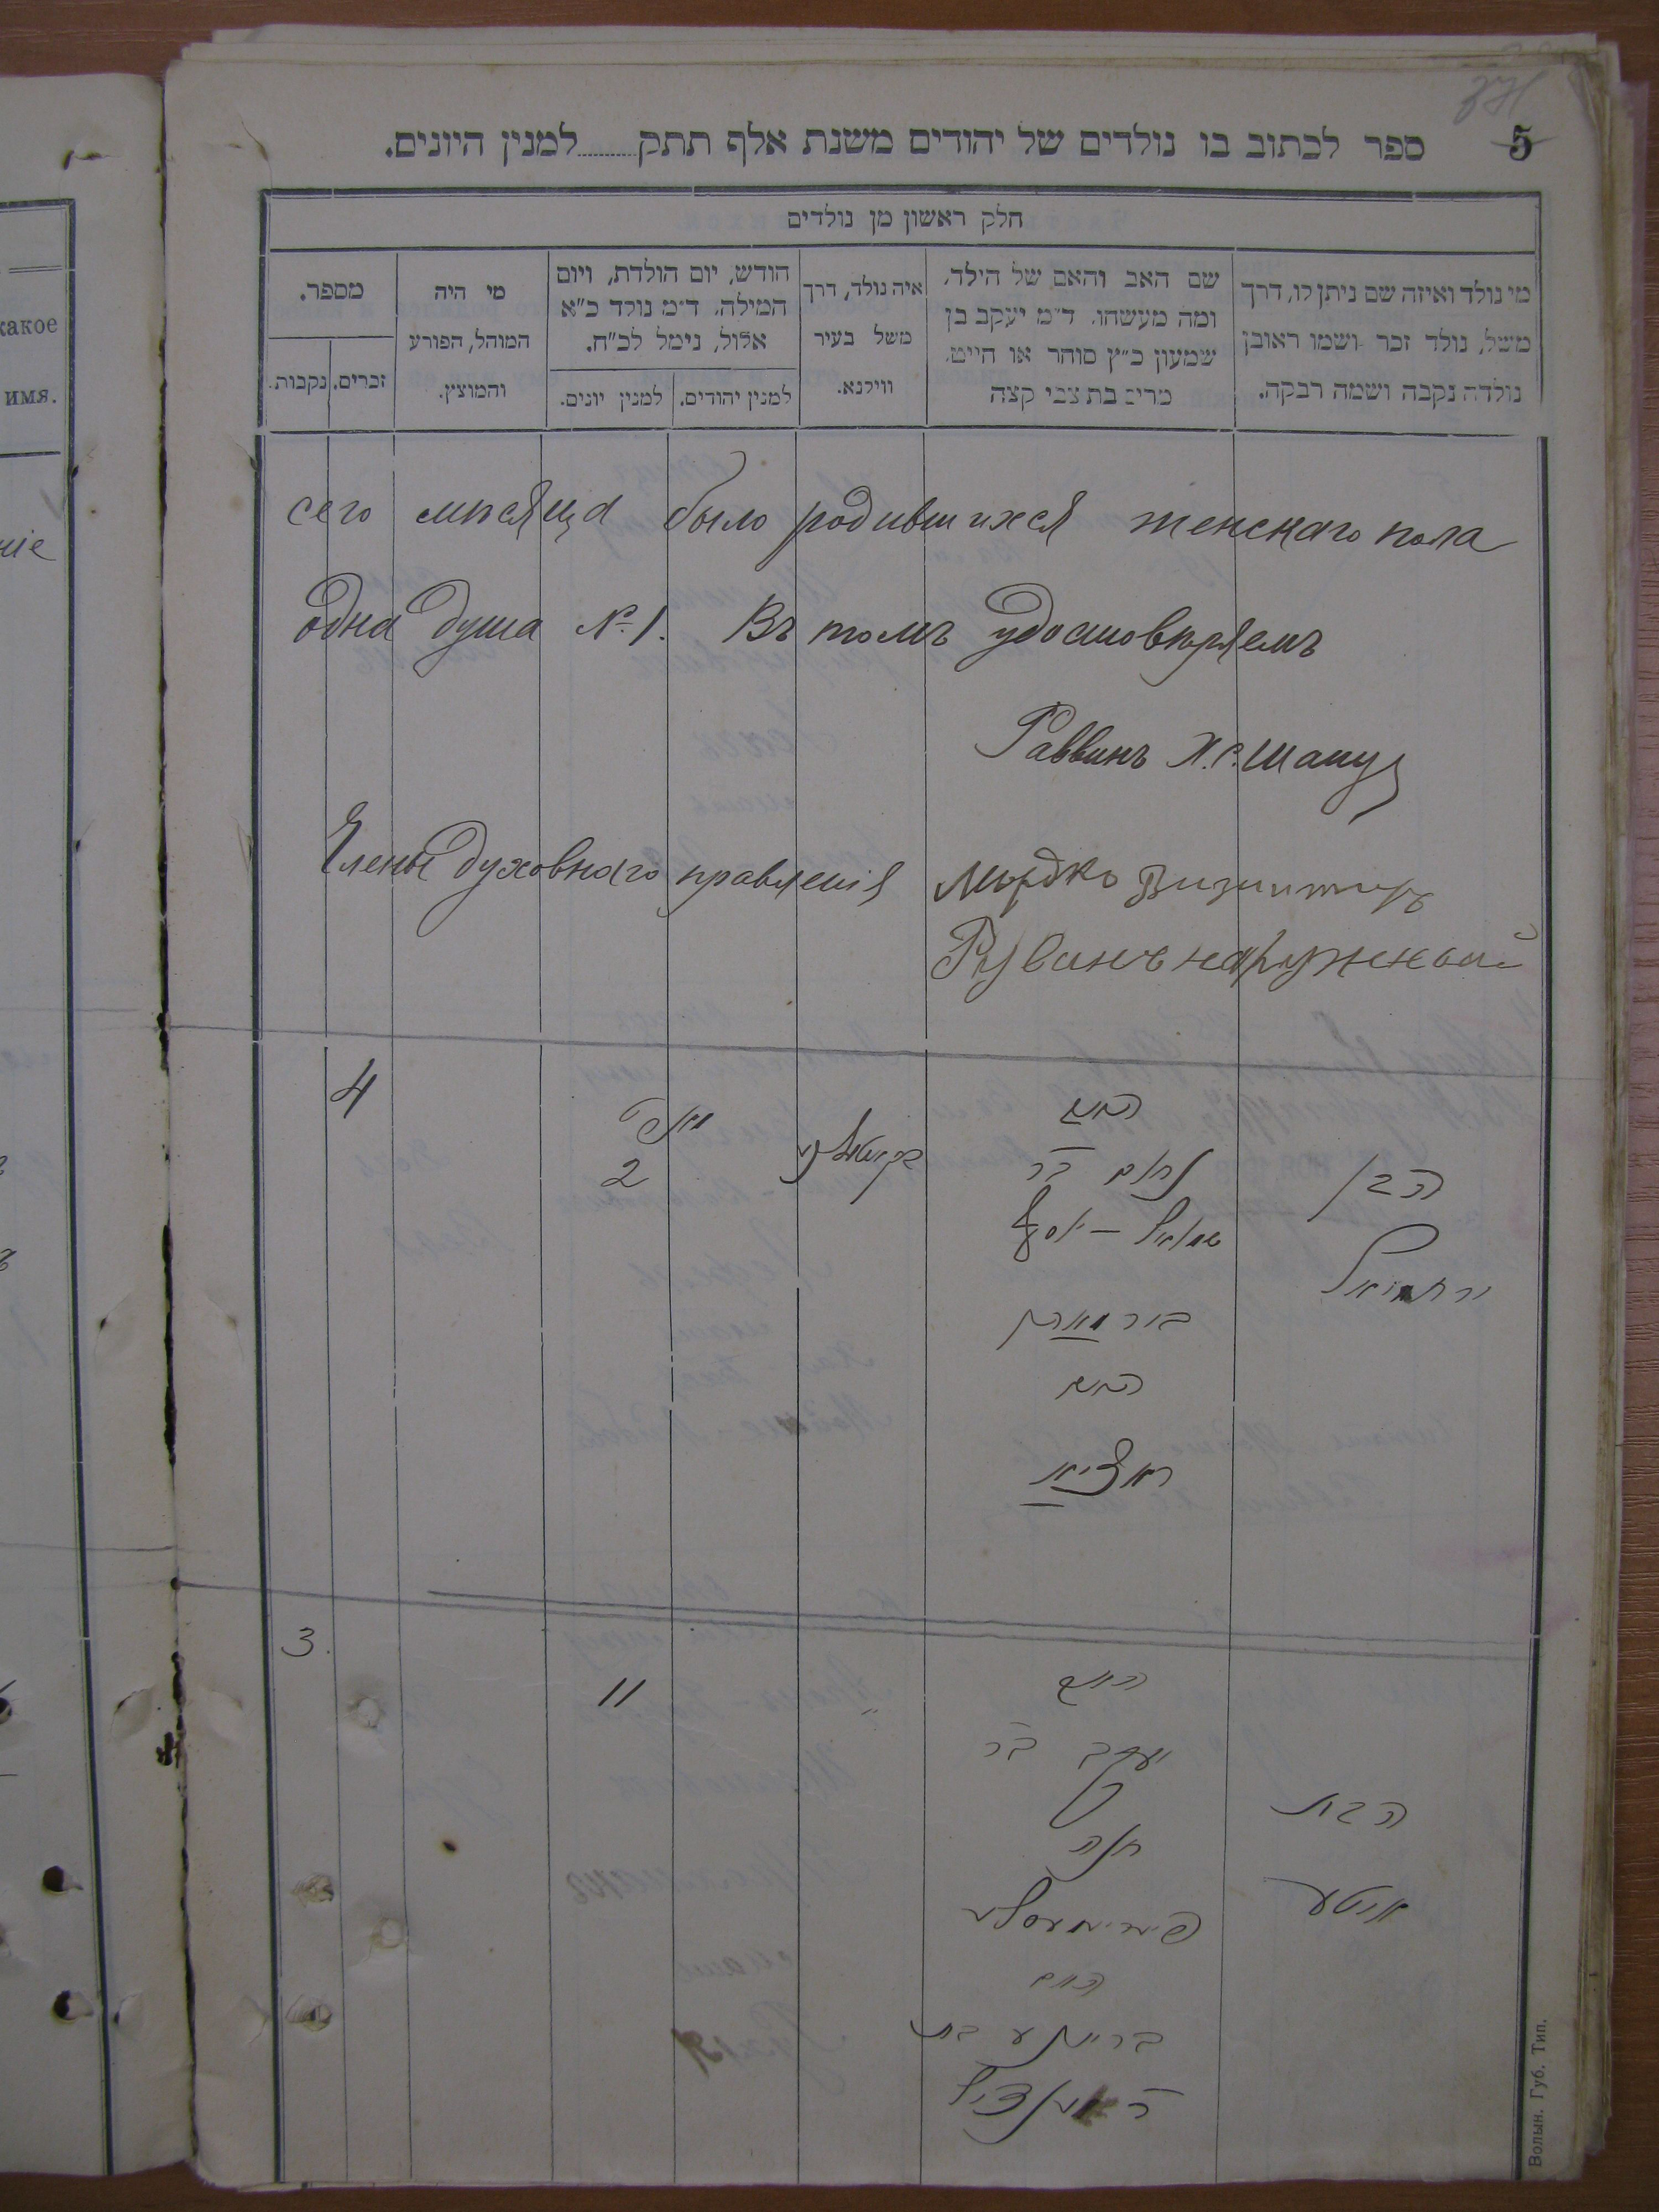 371
5
ספר לכתוב בו נולדים של יהודים משנת אלף תתק......... למנין היונים.
חלק ראשון מן נולדים
מי נולד ואיזה שם ניתן לו, דרך
משל, נולד זכר ושמו ראובן
נולדה נקבה ושמה רבקה.
שם האב והאם של הילד,
ומה מעשהו. ד״מ יעקב בן
שמעון כ״ץ סוחר או חייט.
מרים בת צבי קצה
איה נולד, דרך
משל בעיר
ווילנא.
חודש, יום הולדת, ויום
המילה, ד״מ נולד כ״א
אלול, נימל לכ״ח.
למנין יהודים.
למנין יונים.
מי היה
המוהל, הפורע
והמוצץ.
מספר.
זכרים.
נקבות.
какое
имя.
ніе
сего мѣсяца было родившихся женскаго пола
одна душа № 1. Въ томъ удостовѣряемъ
Раввинъ Х.С. Шапу
Члены духовнаго правленія Мордко
Рувинъ наружный
4
2
הבן
ירחמיאל
האב
נחום בר
שמואל – יוסף
האם
3.
11
״
הבת
איטע
האב
יעקב בר
חנה
האם
ברײנע בת
Волын. Губ. Тип.